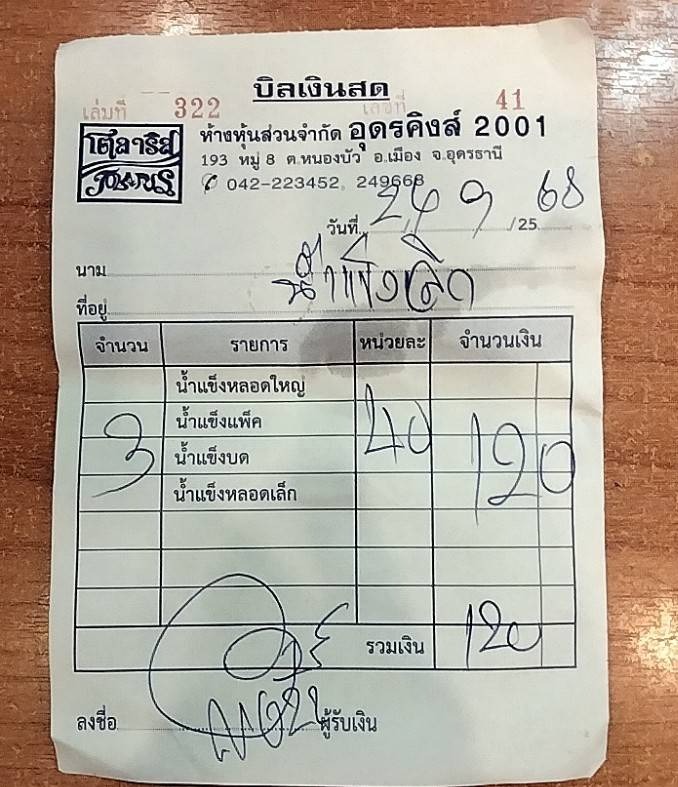 บิลเงินสด
เล่มที่ 322 เลขที่ 41
โพลาริส ห้างหุ้นส่วนจำกัด อุดรคิงส์ 2001
POLARIS 193 หมู่ 8 ต.หนองบัว อ.เมือง จ.อุดรธานี
042-223452, 249668
วันที่ 24 9 /25 68
นาม
ที่อยู่
จำนวน รายการ หน่วยละ จำนวนเงิน
น้ำแข็งหลอดใหญ่
น้ำแข็งแพ็ค
3 น้ำแข็งบด 40 120
น้ำแข็งหลอดเล็ก
รวมเงิน 120
ลงชื่อ ผู้รับเงิน